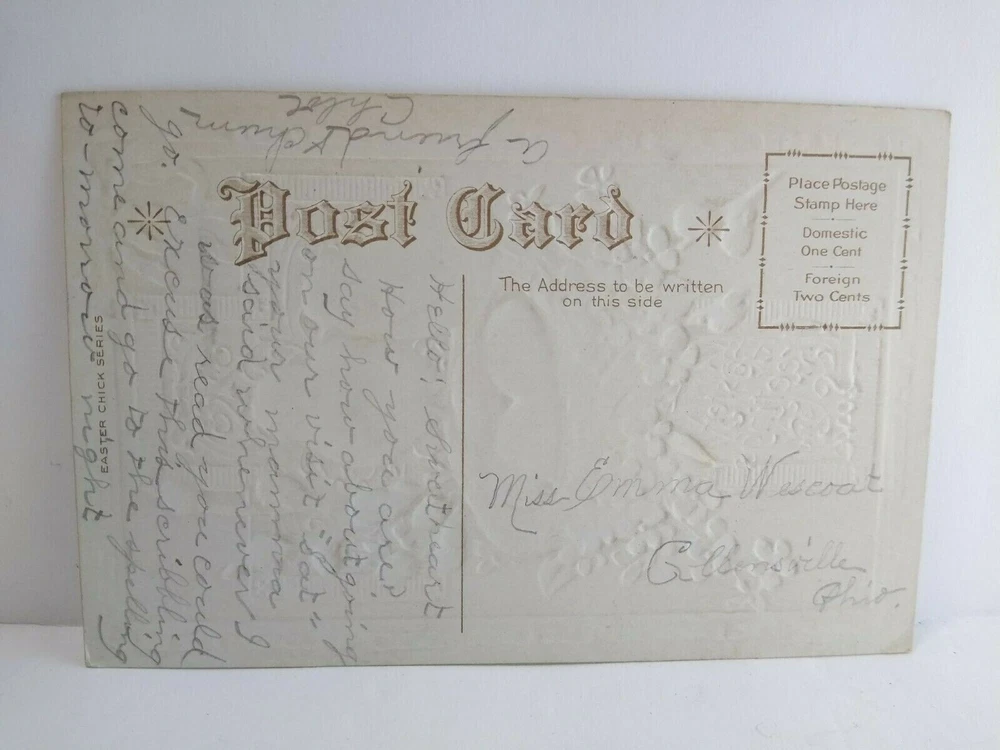 Post Card
Place Postage
Stamp Here
Domestic
One Cent
Foreign
Two Cents
The Address to be written
on this side
EASTER CHICK SERIES
Hello! Sweetheart
How you are?
say how about going
on our visit "Sat"
your mamma
said whenever I
was read you could
go. Excuse this scribbling
come and go to the spelling
to-morrow night
a friend & chum
Chloe
Miss Emma Wescoat
Allensville
Ohio.